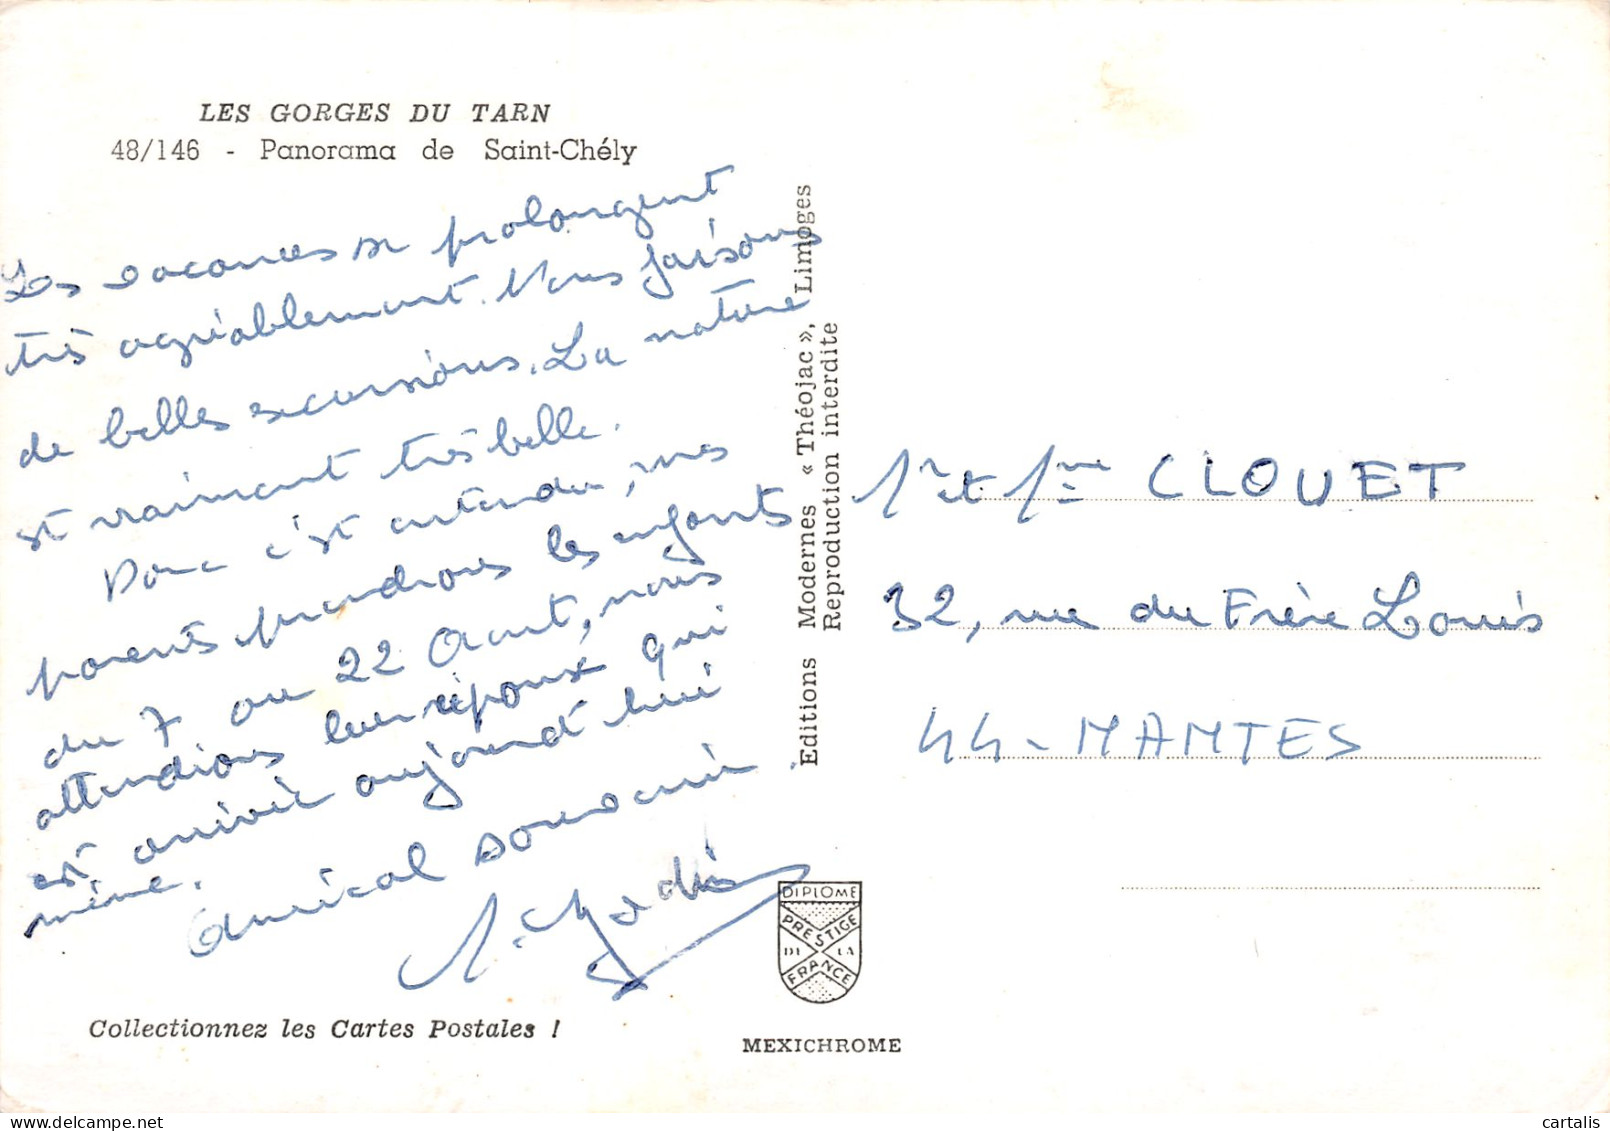 LES GORGES DU TARN
48/146 - Panorama de Saint-Chély
Les vacances se prolongent
très agréablement. Nous faisons
de belles excursions. La nature
est vraiment très belle.
Donc c'est entendu, mes
parents prendrons les enfants
du 7 au 22 Août, nous
attendions leur réponse qui
est arrivée aujourd'hui
même.
Amical souvenir.
Editions Modernes « Théojac », Limoges
Reproduction interdite
Mr et Mme CLOUET
32, rue du Frère Louis
44 - NANTES
DIPLOME
PRESTIGE
DE LA
FRANCE
Collectionnez les Cartes Postales !
MEXICHROME
© cartalis